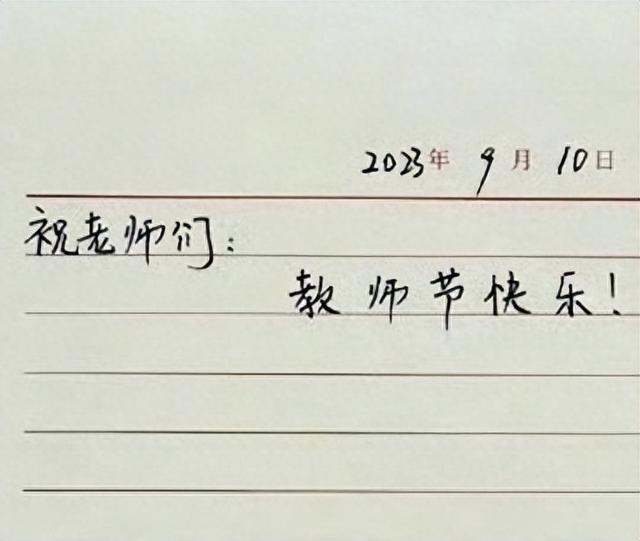 2023年 9月 10日
祝老师们：
教师节快乐！